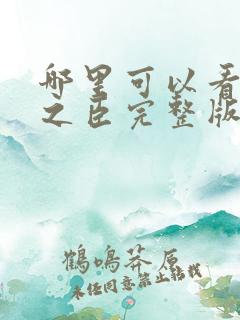 哪里可以看
之臣完整版
鹤鸣莽原
未经同意禁止转载